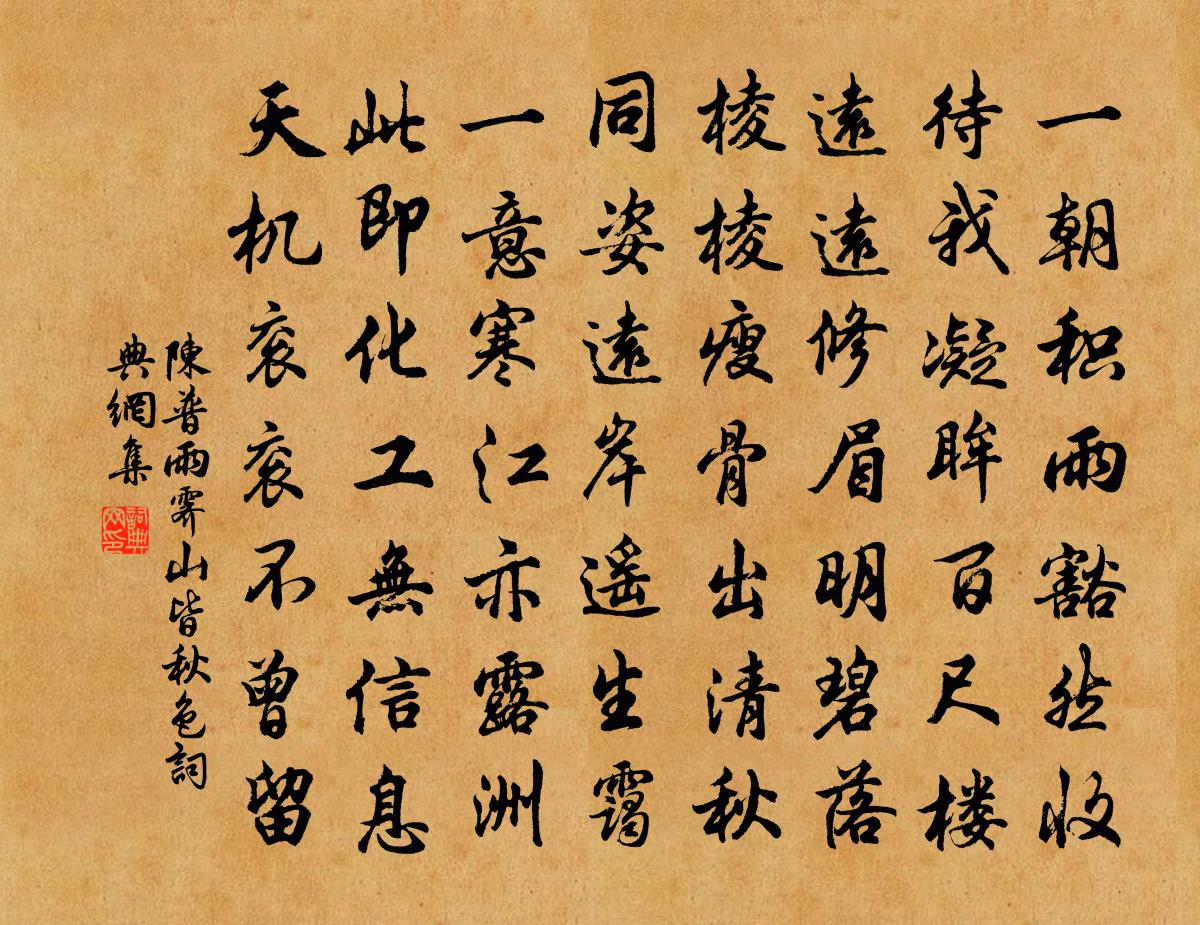 一朝积雨豁然收
待我凝眸百尺楼
遠遠修眉明碧落
棱棱瘦骨出清秋
同姿遠岸遥生靄
一意寒江亦露洲
此即化工無信息
天机衮衮不曾留
陳普雨霽山皆秋色詞
典網集
詞典
网印